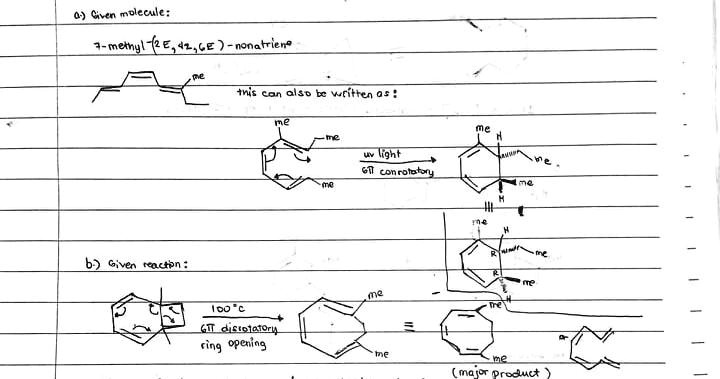 a.) Given molecule:
7-methyl-(2E, 4Z, 6E)-nonatriene
me
this can also be written as:
me
me
me
uv light
6π conrotatory
me
H
me
me
H
|||
me
H
R
me
R
me
H
b.) Given reaction:
100°C
6π disrotatory
ring opening
me
me
≡
me
me
or
(major product)